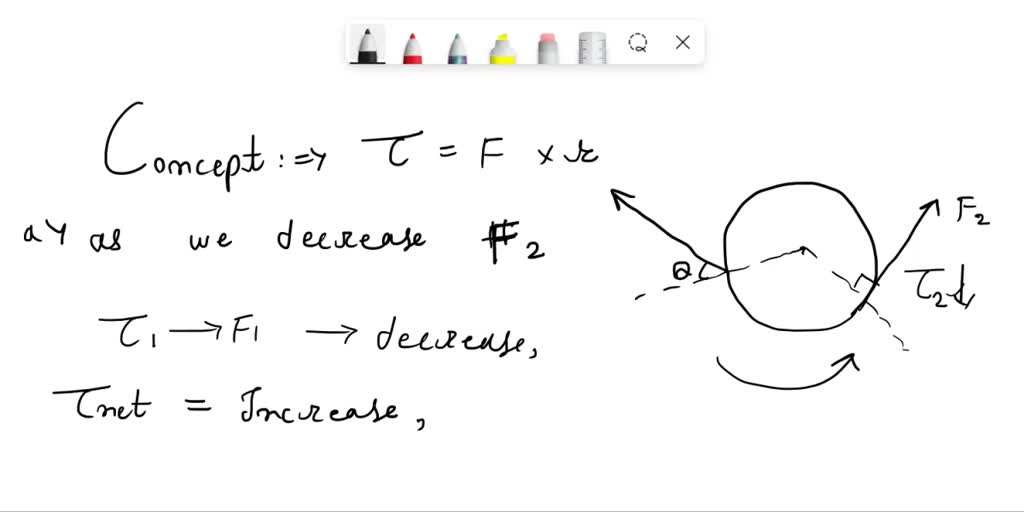 Concept :=> τ = F × r
a> as we decrease F₂
τ₁ → F₁ → decrease,
τnet = Increase,
θ
F₂
τ₂↓,